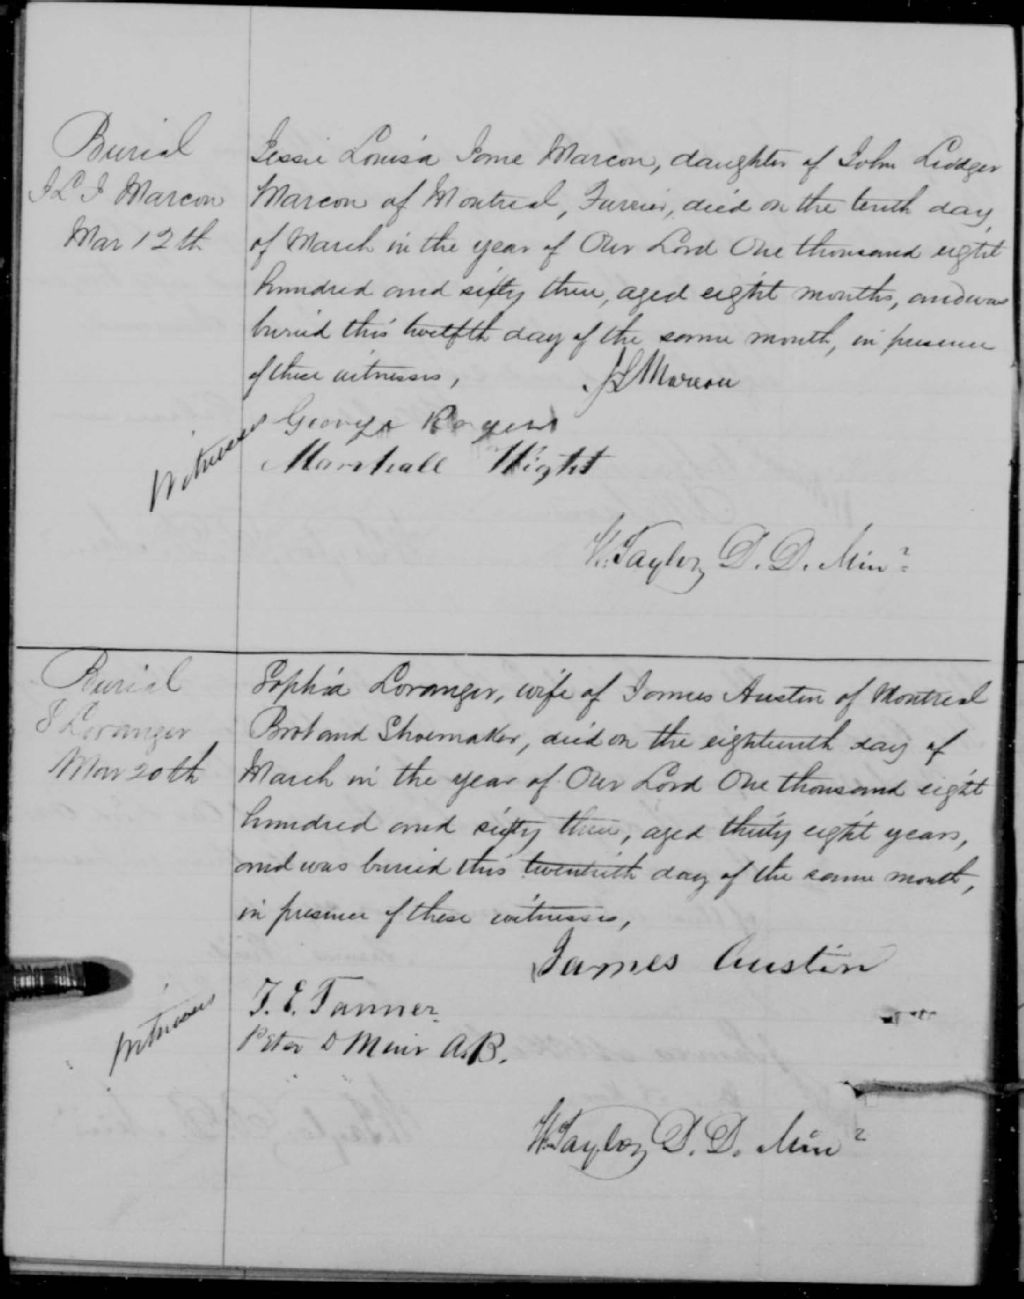 Burial
J L J Marcon
Mar 12th
Jessie Louisa Jome Marcon, daughter of John Ludger
Marcon of Montreal, Furrier, died on the tenth day
of March in the year of Our Lord One thousand eight
hundred and sixty three, aged eight months, and was
buried this twelfth day of the same month, in presence
of these witnesses,
J L Marcon
Witnesses
George Rogers
Marshall Wight
W. Taylor D. D. Minr
Burial
S Loranger
Mar 20th
Sophia Loranger, wife of James Austin of Montreal
Boot and Shoemaker, died on the eighteenth day of
March in the year of Our Lord One thousand eight
hundred and sixty three, aged thirty eight years,
and was buried this twentieth day of the same month,
in presence of these witnesses,
James Austin
Witnesses
T. E. Tanner
Peter D Muir A.B.
W. Taylor D. D. Minr